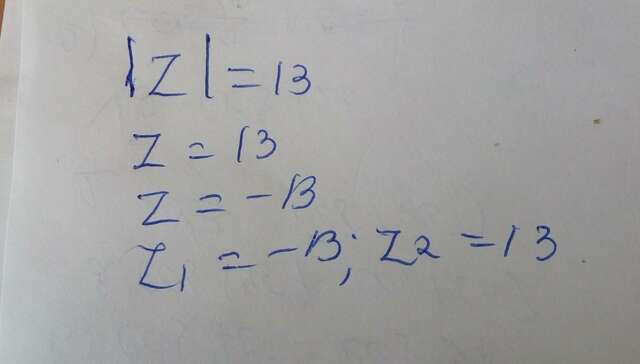 |z| = 13
z = 13
z = -13
z1 = -13; z2 = 13